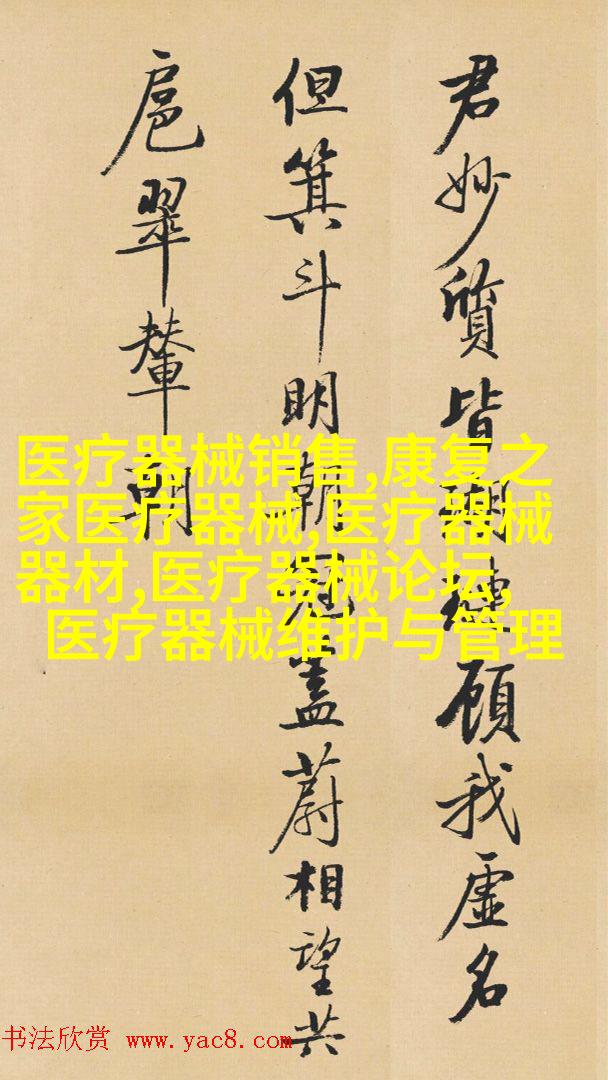 君妙質皆瑚璉顾我虚名
但箕斗明朝冠盖蔚相望共
扈翠輦朝
医疗器械销售,康复之
家医疗器械,医疗器械
器材,医疗器械论坛,
医疗器械维护与管理
书法欣赏 www.yac8.com